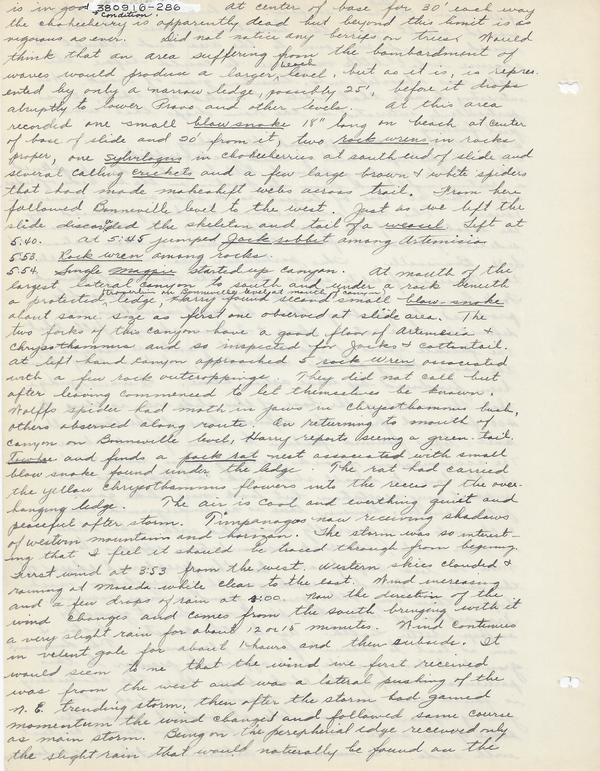 is in good condition. At center of base for 30' each way
380916-286
the chokecherry is apparently dead but beyond this limit is as
vigorous as ever. Did not notice any berries on trees. Would
think that an area suffering from the bombardment of
waves would produce a larger beach level, but as it is, is repres
ented by only a narrow ledge, possibly 25', before it drops
abruptly to lower Provo and other levels. At this area
recorded one small blow snake 18" long on beach at center
of base of slide and 20' from it, two rock wrens in rocks
proper, one Sylvilagus in chokecherries at south end of slide and
several calling crickets and a few large brown & white spiders
that had made makeshift webs across trail. From here
followed Bonneville level to the west. Just as we left the
slide discovered the skeleton and tail of a weasel. Left at
5:40. At 5:45 jumped Jack rabbit among Artemisia
5:53. Rock wren among rocks.
5:54. Single magpie started up canyon. At mouth of the
largest lateral canyon to south and under a rock beneath
a protecting ledge, (Bonneville level at mouth of canyon) Harry found second small blow-snake
about same size as first one observed at slide area. The
two forks of this canyon have a good flow of Artemesia &
Chrysothamnus and so inspected for Jacks & cottontail.
At left hand canyon approached 5 rock wren associated
with a few rock outcroppings. They did not call but
after leaving commenced to let themselves be known.
Wolffs spider had moth in jaws in Chrysothamnus bush,
others observed along route. On returning to mouth of
canyon on Bonneville level, Harry reports seeing a green-tail.
Towhee and finds a pack rat nest associated with small
blow snake found under the ledge. The rat had carried
the yellow chrysothamnus flowers into the recess of the over-
hanging ledge. The air is cool and everthing quiet and
peaceful after storm. Timpanogos now receiving shadows
of western mountains and horizon. The storm was so interest-
ing that I feel it should be traced through from beginning.
First wind at 3:53 from the west. Western skies clouded &
raining at Mosida while clear to the east. Wind increasing
and a few drops of rain at 4:00. Now the direction of the
wind changes and comes from the south bringing with it
a very slight rain for about 12 or 15 minutes. Wind continues
in velent gale for about 1 hours and then subsides. It
would seem to me that the wind we first received
was from the west and was a lateral pushing of the
N.E. trending storm, then after the storm had gained
momentum the wind changed and followed same course
as main storm. Being on the peripheral edge received only
the slight rain that would naturally be found on the